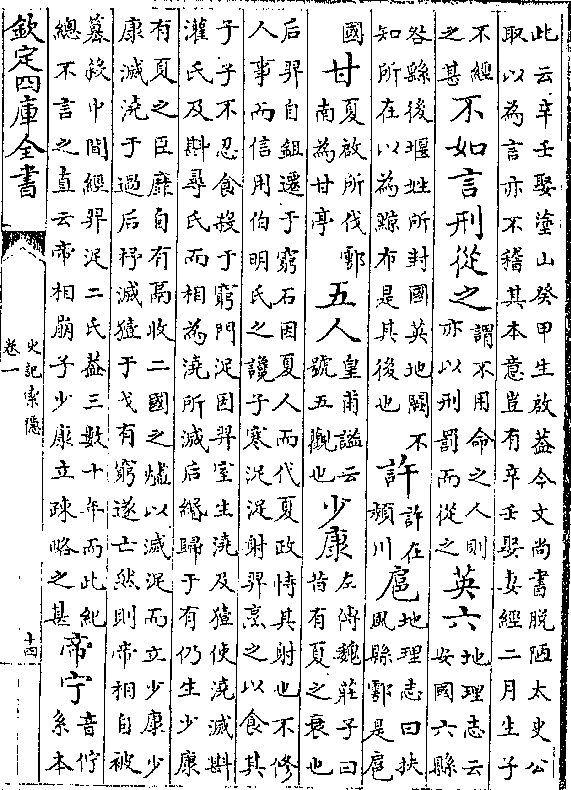 此云辛壬娶塗山癸甲生啟葢今文尚書脱陋太史公
取以為言亦不稽其本意豈有辛壬娶妻經二月生子
不經
之甚
不如言刑從之
謂不用命之人則
亦以刑罰而從之
英六
地理志云
安國六縣
咎繇後堰姓所封國英地闕不
知所在以為黥布是其後也
許
許在
潁川
扈
地理志曰扶
風縣鄠是扈
國
甘
夏啟所伐鄠
南為甘亭
五人
皇甫謐云
號五觀也
少康
左傳魏莊子曰
昔有夏之衰也
后羿自組遷于窮石因夏人而代夏政恃其射也不修
人事而信用伯明氏之讒子寒浞浞射羿烹之以食其
子子不忍食殺于窮門浞因羿室生澆及豷使澆滅斟
灌氏及斟尋氏而相為澆所滅后緡歸于有仍生少康
有夏之臣靡自有鬲收二國之燼以滅浞而立少康少
康滅澆于過后杼滅豷于戈有窮遂亡然則帝相自被
簒殺中間經羿浞二氏葢三數十年而此紀
總不言之直云帝相崩子少康立疎略之甚
帝宁
音佇
系本
欽定四庫全書
史記索隱
卷一
十四